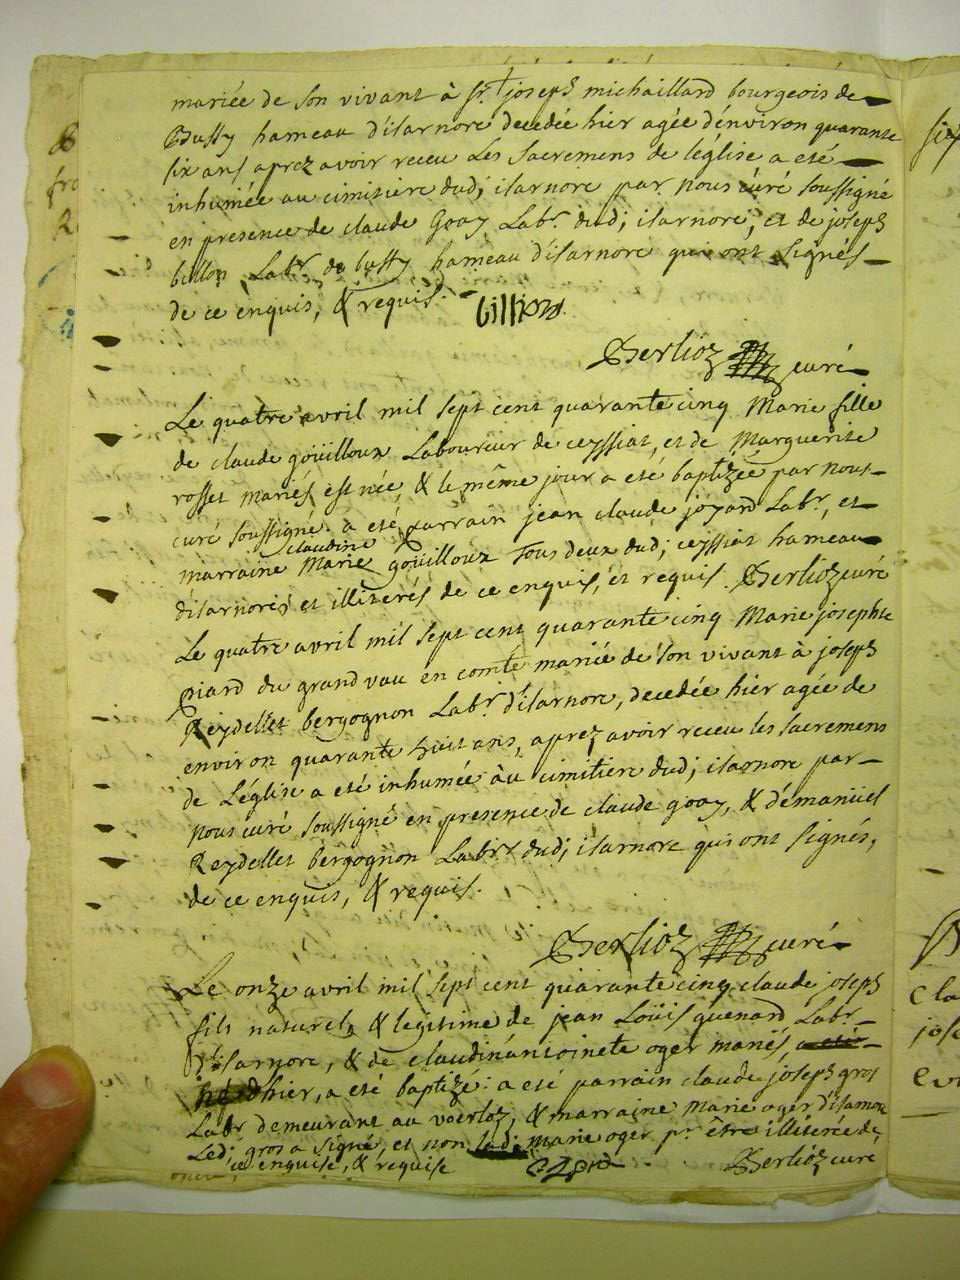 mariée de son vivant à sr. joseph michaillard bourgeois de
Bussy hameau d'isarnore decedée hier agée d'environ quarante
six ans aprez avoir receu les sacremens de l'église a eté
inhumée au cimitiere dud; isarnore par nous curé soussigné
en presence de claude goay Labr. dud; isarnore, et de joseph
billon Labr. de bussy hameau d'isarnore qui ont signés
de ce enquis, & requis. billion.
Berlioz curé
Le quatre avril mil sept cent quarante cinq Marie fille
de claude goüilloux Laboureur de ceyssiat, et de Marguerite
rosset mariés est née, & le même jour a eté baptizée par nous
curé soussigné. a eté parrain jean claude joyard Labr., et
claudine
marraine Marie goüilloux tous deux dud; ceyssiat hameau
d'isarnore, et illiterés de ce enquis, et requis. Berlioz curé
Le quatre avril mil sept cent quarante cinq Marie josephte
piard du grand vau en comté mariée de son vivant à joseph
Reydellet bergognon Labr. d'isarnore, decedée hier agée de
environ quarante huit ans, aprez avoir receu les sacremens
de L'église a eté inhumée au cimitiere dud; isarnore par
nous curé soussigné en presence de claude goay, & d'emanüel
Reydellet bergognon Labrs. dud; isarnore qui ont signés,
de ce enquis, & requis.
Berlioz curé
Le onze avril mil sept cent quarante cinq claude joseph
fils naturel, & legitime de jean Loüis quenard Labr.
d'isarnore, & de claudin'antoinete oger mariés,
hier, a eté baptizé: a eté parrain claude joseph gros
Labr demeurant au voerloz, & marraine Marie oger d'isarnore
Led; gros a signé, et non lad; marie oger pr. être illiterée de
ce enquise, & requise Berlioz curé